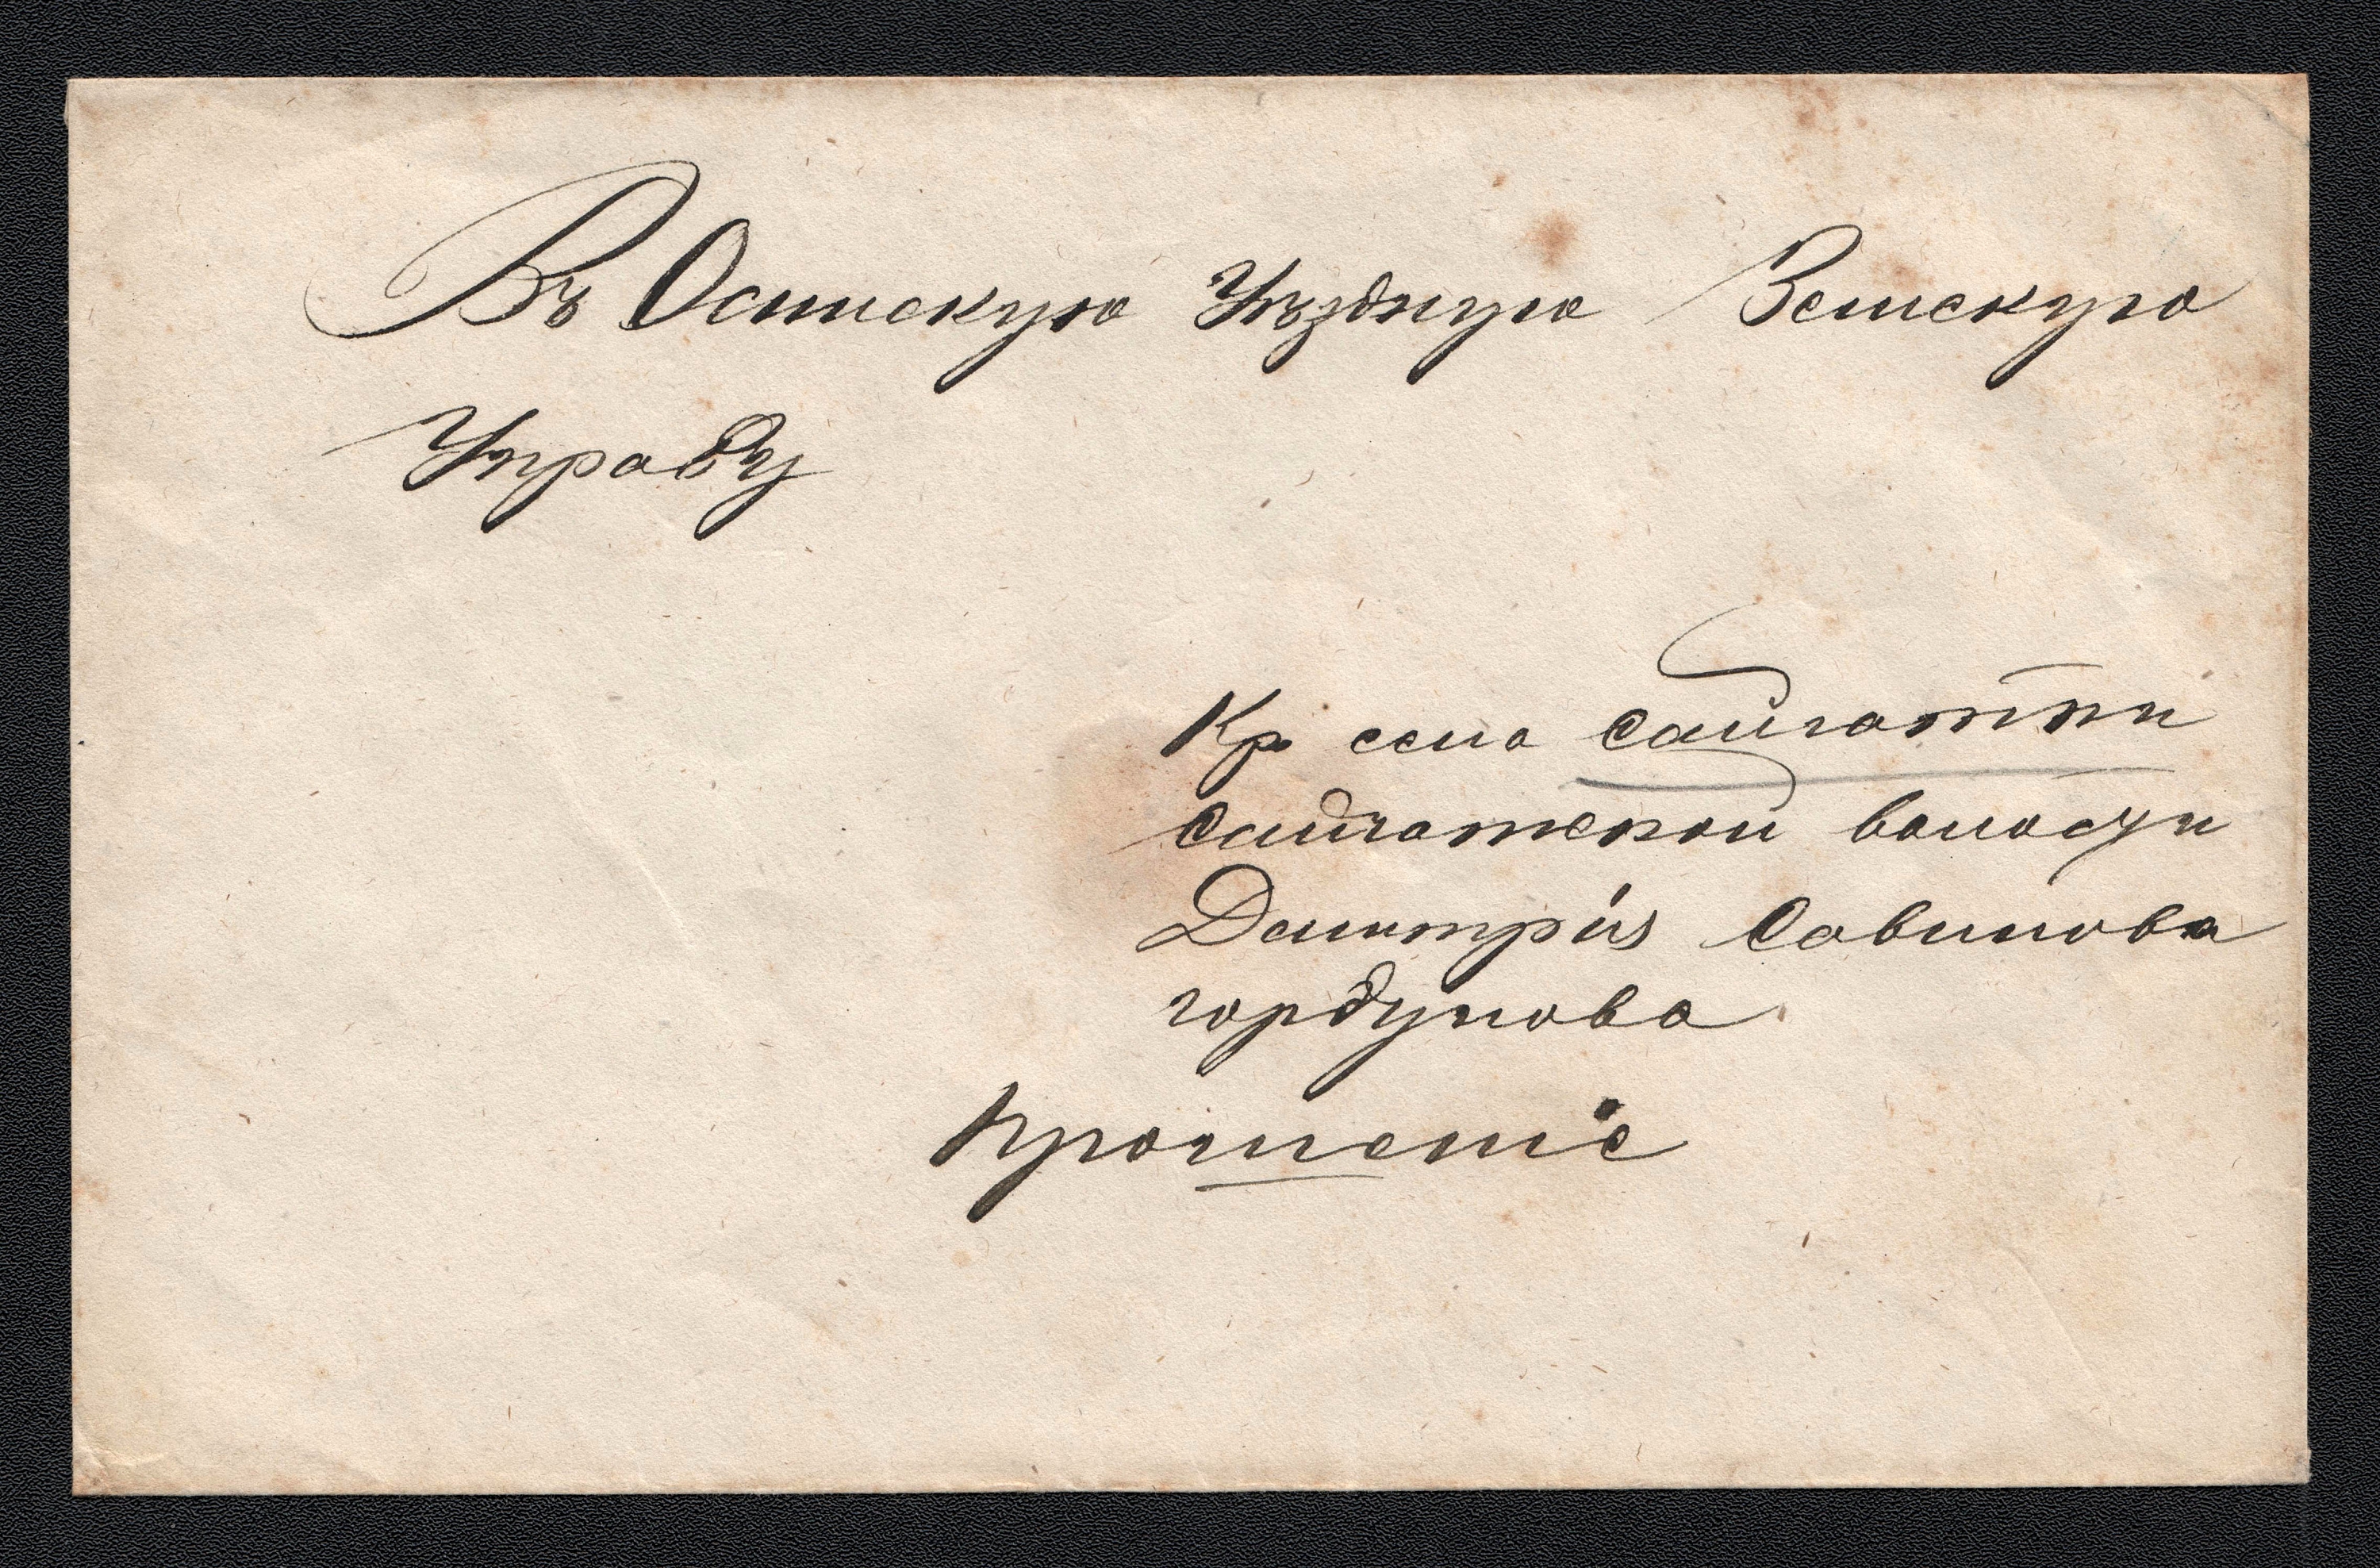 Въ Осинскую Уѣздную Земскую
Управу
Кр села Сайгатки
Сайгатской волости
Димитрія Савинова
гордунова
прошеніе